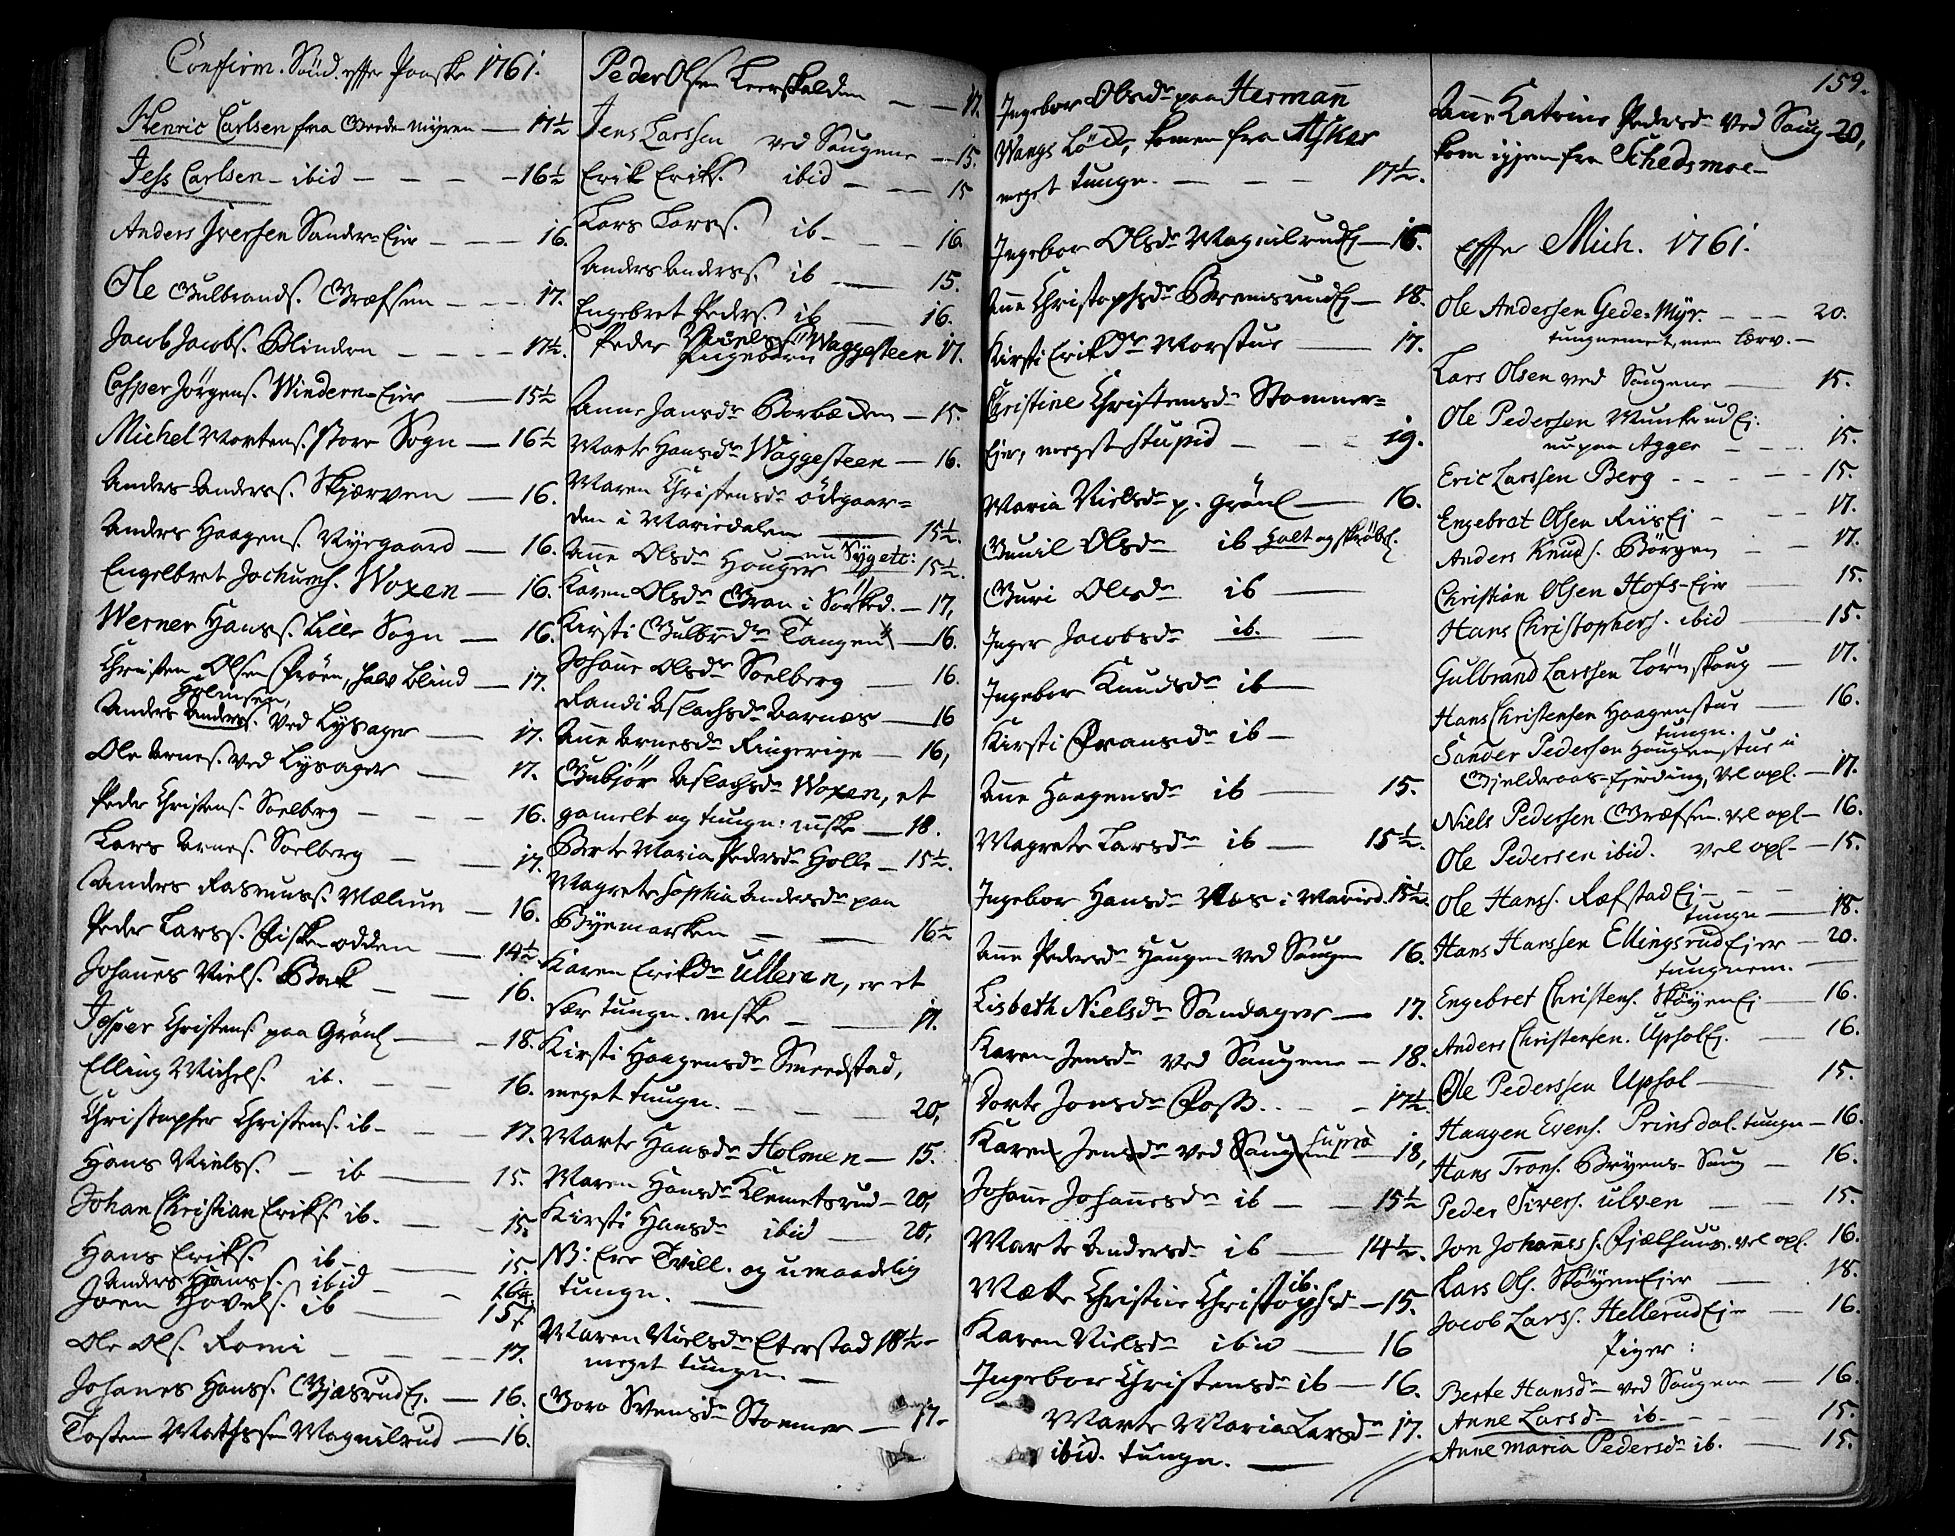 Confirm. Sönd. effter Paaske 1761.
Henric Carlsen fra Geede-Myren — 17½
Jess Carlsen - ibid - - - - 16½
Anders Iversen Sander-Eier - - - 16.
Ole Gulbrands. Græfsen - - - 17.
Jacob Jacobs. Blindern - - - - 17½.
Casper Jörgens. Windern-Eier — 15½
Michel Mortens. store Sogn — 16½
Anders Anderss. Skjærven — 16.
Anders Haagens. Nyegaard — 16.
Engelbret Jochums. Woxen — 16.
Werner Hanss. Lille Sogn — 16.
Christen Olsen Fröen, halv blind — 17.
Anders Anderss. ved Lysager — 17.
Ole Arnes. ved Lysager — 17.
Peder Christens. Soelberg - - - 16.
Lars Arnes. Soelberg - - 17.
Anders Rasmuss. Mælum — 16.
Peder Larss. Fiske-odden — 14½.
Johannes Niels. Bak - — 16.
Jesper Christens. paa Grönl. — - 18.
Elling Michels. ib. - - - 16.
Christopher Christens. ib - - - 17.
Hans Nielss. - ib — 15.
Johan Christian Eriks. ib. - - - 15.
Hans Eriks. ib - — 15.
Anders Hanss. ibid - - 16½.
Joen Hovels. ib — 15.
Ole Ols. - - - - 17.
Johanes Hanss. Ej. — 16.
Tosten Mathisen Magnilrud — 16.
Peder Olsen Leerskalden - — 17.
Jens Larssen ved Saugene — 15.
Erik Eriks. ibid - - 15
Lars Larss. ib - - - 16.
Anders Anderss. ib — 15.
Engebret Peders. ib — 16.
Peder Nielss. Waggesteen 17.
Anne Jansdr Borbæden — 15.
Marte Hansdr Waggesteen — 16.
Maren Christensdr ödegaar=
den i Mariedalen — 15½.
Anne Olsdr Hougen nu Syg etc: 15½.
Karen Olsdr Gran i Sörked. — 17,
Kirsti Gulbrdr Tangen — 16.
Johanne Olsdr Soelberg — 16.
Randi Aslachsdr Aarnæs — 16
Anne Arnesdr Ringerige — 16,
Gubjör Aslachsdr Woxen, et
gamelt og tungn: mske — 18.
Berte Maria Pedersdr Holle — 15½.
Magrete Sophia Andersdr paa
Byemarken — — 16½
Karen Erikdr Ulleren, er et
svær tungn. mske - — 17.
Kirsti Haagensdr Smedstad,
meget tungn. - - - 20,
Marte Hansdr Holmen — 15.
Maren Hansdr Klemetsrud — 20,
Kirsti Hansdr ibid — 20,
NB: Ere Tvill. og umaadelig
tungn. —
Maren Nielsdr Eterstad 18½ -
meget tungn —
Goro Svensdr Stommer — 17 -
159.
Ingebor Olsdr paa Herman
Wangs Löd, komen fra Asker
meget tungn. — - - 17½.
Ingebor Olsdr Magnilrud Ej — 16.
Ane Christophsdr Bremsrud Ej — 18.
Kirsti Erikdr Morstue — 17.
Christine Christensdr Stommer=
Eier, meget stupid - - - 19.
Maria Nielsdr p. Grönl — 16.
Gunil Olsdr ib halt og skröbel.
Guri Olsdr ib —
Inger Jacobsdr ib. —
Ingebor Knudsdr ib —
Kirsti Fransdr ib —
Ane Haagensdr ib — 15.
Magrete Larsdr ib — 15½.
Ingebor Hansdr Aas i Maried. 15½.
Ane Pedersdr Haugen ved Saugen 16.
Lisbeth Nielsdr Sandager — 17.
Karen Jensdr ved Saugene — 18.
Dorte Jonsdr Foss. - - 17½.
Karen Jensdr ved Saugene supra — 18,
Johanne Johannesdr ib — - 15½
Marte Andersdr ib — 14½.
Mette Christine Christophsdr ib. — 15.
Karen Nielsdr ibid — 16
Ingebor Christensdr ib — 16.
Marte Maria Larsdr 17.
ibid. tungn. —
Anne Katrine Pedersdr ved Saug 20,
kom igjen fra Schedsmoe -
effter Mich. 1761.
Ole Andersen Gede-Myr. - - - 20.
tungnemet, men lærv. -
Lars Olsen ved Saugene — 15.
Ole Pedersen Munkerud Ej.
nu paa Agger - - - 15.
Eric Larssen Berg - - - - 15.
Engebret Olsen Riis Ej - - - 17.
Anders Knuds. Börgen - - 17.
Christian Olsen Hofs-Eier — 15.
Hans Christophers. ibid — 15.
Gulbrand Larssen Törnskoug — 17.
Hans Christensen Haagenstue — 16.
tungn.
Sander Pedersen Haugenstue i
Gjelderaas-fierding, vel opl. — 17.
Niels Pedersen Græfsen. vel opl — 16.
Ole Pedersen ibid. vel opl. — 15.
Ole Hanss. Refstad Ej - - -
tungn — 18.
Hans Hanssen Ellingsrud Ejer — 20.
tungnem. —
Engebret Christens. Skøyen Ej — 16.
Anders Christensen. Upsol Ej. — 16.
Ole Pederssen Upsal — 15.
Haagen Evens. Prinsdal. tungn — 16.
Hans Trons. Bryens-Saug — 16.
Peder Sivers. ulven — 15.
Jon Johanness. Fjælhuus. vel opl. 16.
Lars Ols. Skøyen Ejer — 18.
Jacob Larss. Hellerud Eje — 16.
Piger:
Berte Hansdr ved Saugene — 16.
Anne Larsdr ib - - - - 15.
Anne Maria Pedersdr ib. — 15.